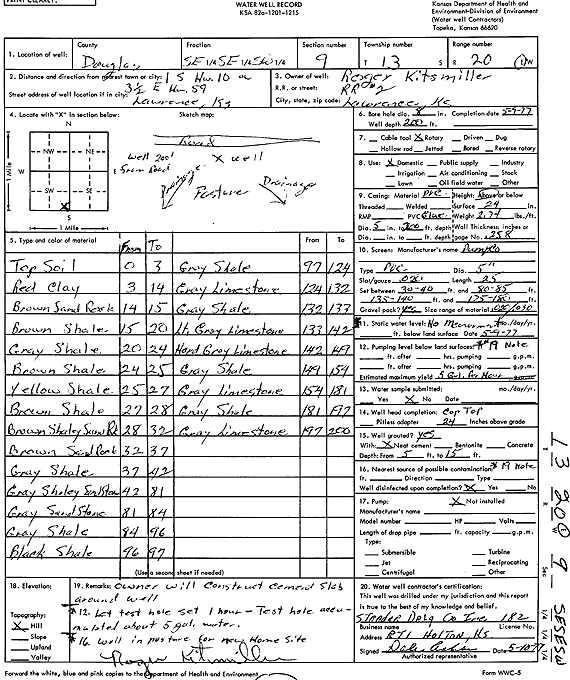 WATER WELL RECORD
KSA 82a-1201-1215
Kansas Department of Health and
Environment-Division of Environment
(Water well Contractors)
Topeka, Kansas 66620
1. Location of well:
County
Douglas
Fraction
SE 1/4 SE 1/4 SW 1/4
Section number
9
Township number
T 13 S
Range number
R 20 E/W
2. Distance and direction from nearest town or city: 1 S Hw. 10 on
3 1/2 E Hw. 59
Street address of well location if in city:
Lawrence, Ks
3. Owner of well: Roger Kitsmiller
R.R. or street: RR#2
City, state, zip code: Lawrence, Ks
4. Locate with "X" in section below:
Sketch map:
N
NW NE
W E
SW SE
X
S
1 Mile
1 Mile
Road
Well 200'
From Road
X well
Pasture
Drainage
6. Bore hole dia. 8 in. Completion date 5-9-77
Well depth 200 ft.
7. Cable tool X Rotary Driven Dug
Hollow rod Jetted Bored Reverse rotary
8. Use: X Domestic Public supply Industry
Irrigation Air conditioning Stock
Lawn Oil field water Other
9. Casing: Material PVC Height: Above or below
Threaded Welded Surface 24 in.
RMP PVC Weight 2.74 lbs./ft.
Dia. 5 in. to 200 ft. depth Wall Thickness: inches or
Dia. in. to ft. depth gage No. .258
5. Type and color of material
From To
From To
Top Soil 0 3 Gray Shale 97 124
Red Clay 3 14 Gray Limestone 124 132
Brown Sand Rock 14 15 Gray Shale 132 133
Brown Shale 15 20 Lt. Gray Limestone 133 142
Gray Shale 20 24 Hard Gray Limestone 142 149
Brown Shale 24 25 Gray Shale 149 154
Yellow Shale 25 27 Gray Limestone 154 181
Brown Shale 27 28 Gray Shale 181 197
Brown Shaley Sand Rk 28 32 Gray Limestone 197 200
Brown Sand Rock 32 37
Gray Shale 37 42
Gray Shaley Sandstone 42 81
Gray Sandstone 81 84
Gray Shale 84 96
Black Shale 96 97
(Use a second sheet if needed)
10. Screen: Manufacturer's name
Type PVC Dia. 5"
Slot/gauze Length 25
Set between 30-40 ft. and 80-85 ft.
135-140 ft. and 175-180 ft.
Gravel pack? yes Size range of material
11. Static water level: mo./day/yr.
ft. below land surface Date 5-9-77
12. Pumping level below land surface: *19 Note
ft. after hrs. pumping g.p.m.
ft. after hrs. pumping g.p.m.
Estimated maximum yield 5 Gal. Per Hour g.p.m.
13. Water sample submitted: mo./day/yr.
Yes X No Date
14. Well head completion: Cap Top
Pitless adapter 24 Inches above grade
15. Well grouted? yes
With: X Neat cement Bentonite Concrete
Depth: From 5 ft. to 15 ft.
16. Nearest source of possible contamination: *19 Note
ft. Direction Type
Well disinfected upon completion? X Yes No
17. Pump: X Not installed
Manufacturer's name
Model number HP Volts
Length of drop pipe ft. capacity g.p.m.
Type:
Submersible Turbine
Jet Reciprocating
Centrifugal Other
18. Elevation:
Topography:
X Hill
Slope
Upland
Valley
19. Remarks: Owner will Construct Cement Slab
around well
*12. Let test hole set 1 hour - Test hole accu-
mulated about 5 gal. water.
*16. Well in pasture for new Home Site
Roger Kitsmiller
20. Water well contractor's certification:
This well was drilled under my jurisdiction and this report
is true to the best of my knowledge and belief.
Strader Drlg Co Inc. 182
Business name License No.
Address RT1 Holton, Ks
Signed Date 5-10-77
Authorized representative
Forward the white, blue and pink copies to the Department of Health and Environment
Form WWC-5
13 20 E 9
T R Sec
SE SE SW
1/4 1/4 1/4